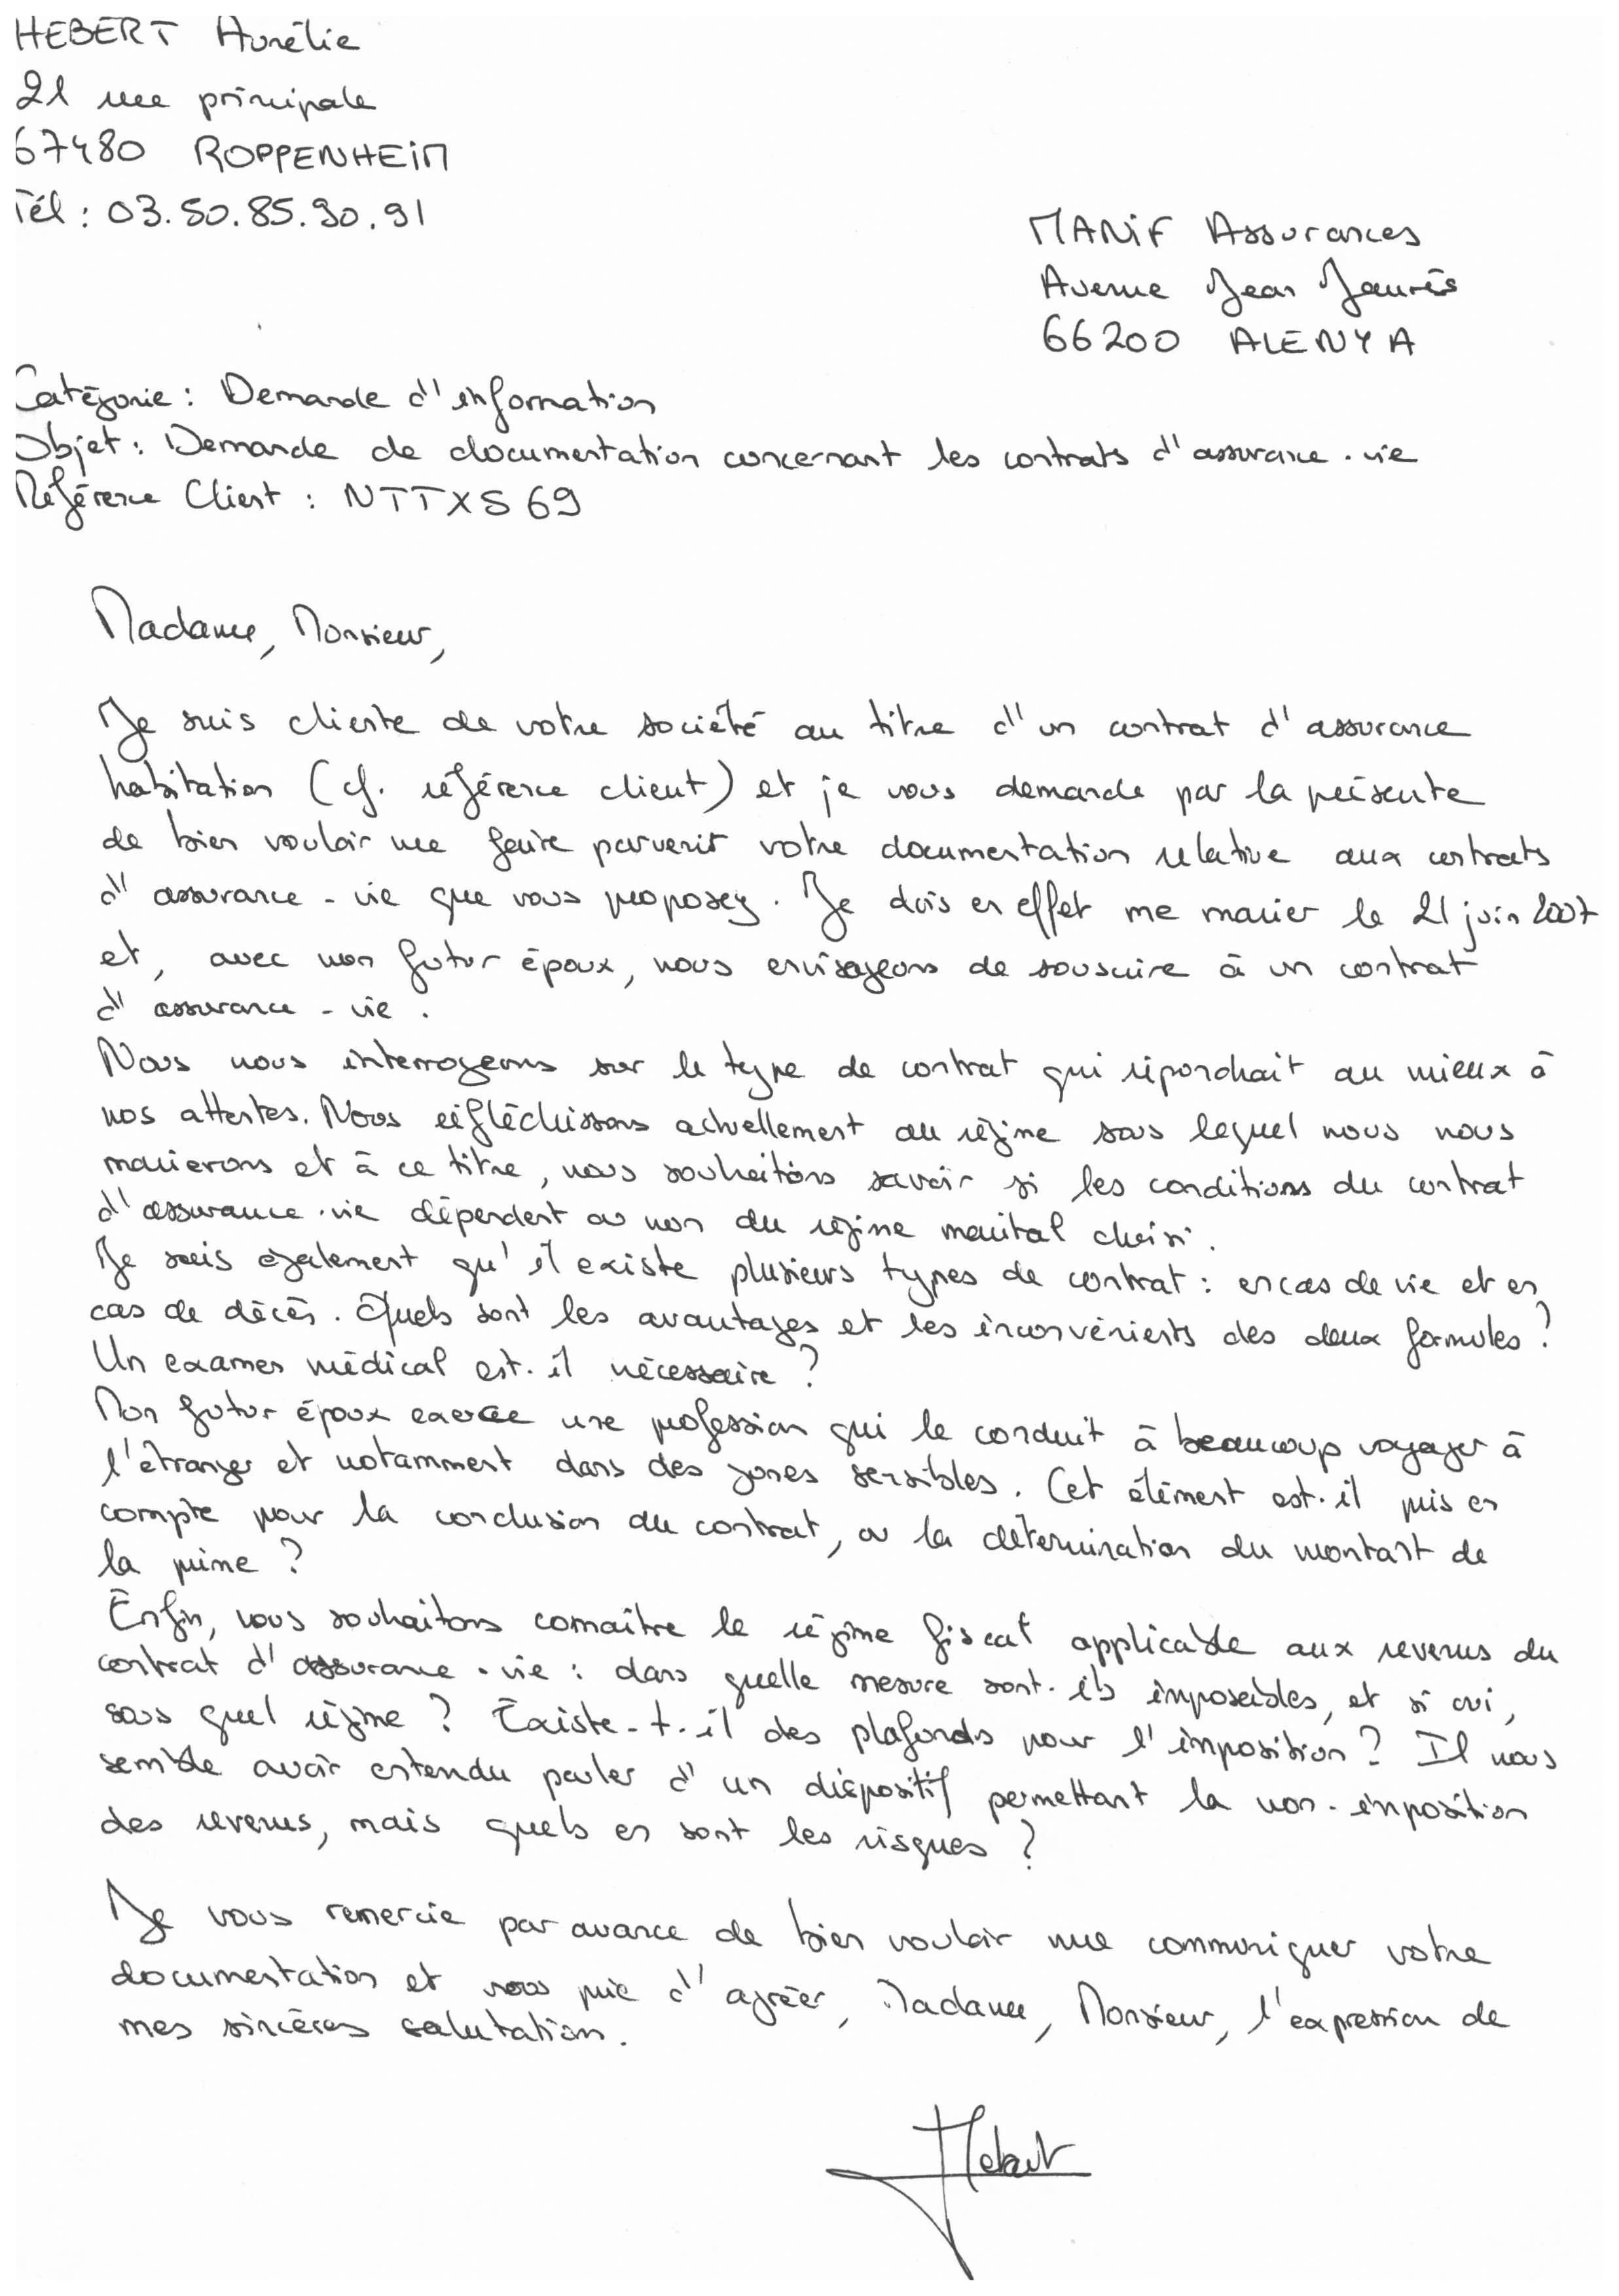 HEBERT Aurélie
21 rue principale
67480 ROPPENHEIM
Tél : 03.50.85.90.91
MANIF Assurances
Avenue Jean Jaurès
66200 ALENYA
Catégorie : Demande d'information
Objet : Demande de documentation concernant les contrats d'assurance-vie
Référence Client : NTTXS69
Madame, Monsieur,
Je suis cliente de votre société au titre d'un contrat d'assurance
habitation (cf. référence client) et je vous demande par la présente
de bien vouloir me faire parvenir votre documentation relative aux contrats
d'assurance-vie que vous proposez. Je dois en effet me marier le 21 juin 2007
et, avec mon futur époux, nous envisageons de souscrire à un contrat
d'assurance-vie.
Nous nous interrogeons sur le type de contrat qui répondrait au mieux à
nos attentes. Nous réfléchissons actuellement au régime sous lequel nous nous
marierons et à ce titre, nous souhaitons savoir si les conditions du contrat
d'assurance-vie dépendent ou non du régime marital choisi.
Je sais également qu'il existe plusieurs types de contrat : en cas de vie et en
cas de décès. Quels sont les avantages et les inconvénients des deux formules ?
Un examen médical est-il nécessaire ?
Mon futur époux exerce une profession qui le conduit à beaucoup voyager à
l'étranger et notamment dans des zones sensibles. Cet élément est-il pris en
compte pour la conclusion du contrat, ou la détermination du montant de
la prime ?
Enfin, nous souhaitons connaître le régime fiscal applicable aux revenus du
contrat d'assurance-vie : dans quelle mesure sont-ils imposables, et si oui,
sous quel régime ? Existe-t-il des plafonds pour l'imposition ? Il nous
semble avoir entendu parler d'un dispositif permettant la non-imposition
des revenus, mais quels en sont les risques ?
Je vous remercie par avance de bien vouloir me communiquer votre
documentation et vous prie d'agréer, Madame, Monsieur, l'expression de
mes sincères salutation.
Hebert